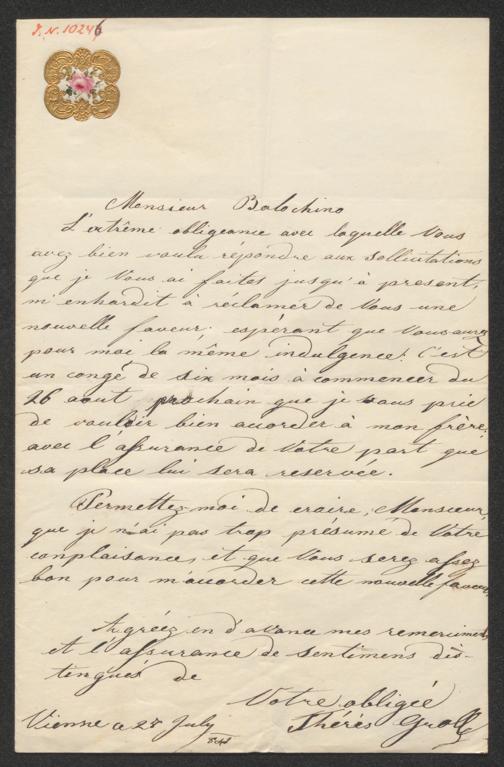 J. N. 10246
Monsieur Balochino
L'extrême obligeance avec laquelle Vous
avez bien voulu répondre aux sollicitations
que je Vous ai faites jusqu'à present,
m'enhardit à réclamer de Vous une
nouvelle faveur; espérant que Vous aurez
pour moi la même indulgence. C'est
un congé de six mois à commencer du
26 aout prochain que je vous prie
de vouloir bien accorder à mon frère,
avec l'assurance de Votre part que
sa place lui sera reservée.
Permettez-moi de croire, Monsieur,
que je n'ai pas trop présumé de Votre
complaisance, et que Vous serez assez
bon pour m'accorder cette nouvelle faveur.
Agréez en d'avance mes remerciments
et l'assurance de sentimens dis-
tengués de
Votre obligée
Vienne a 27 July Thérès